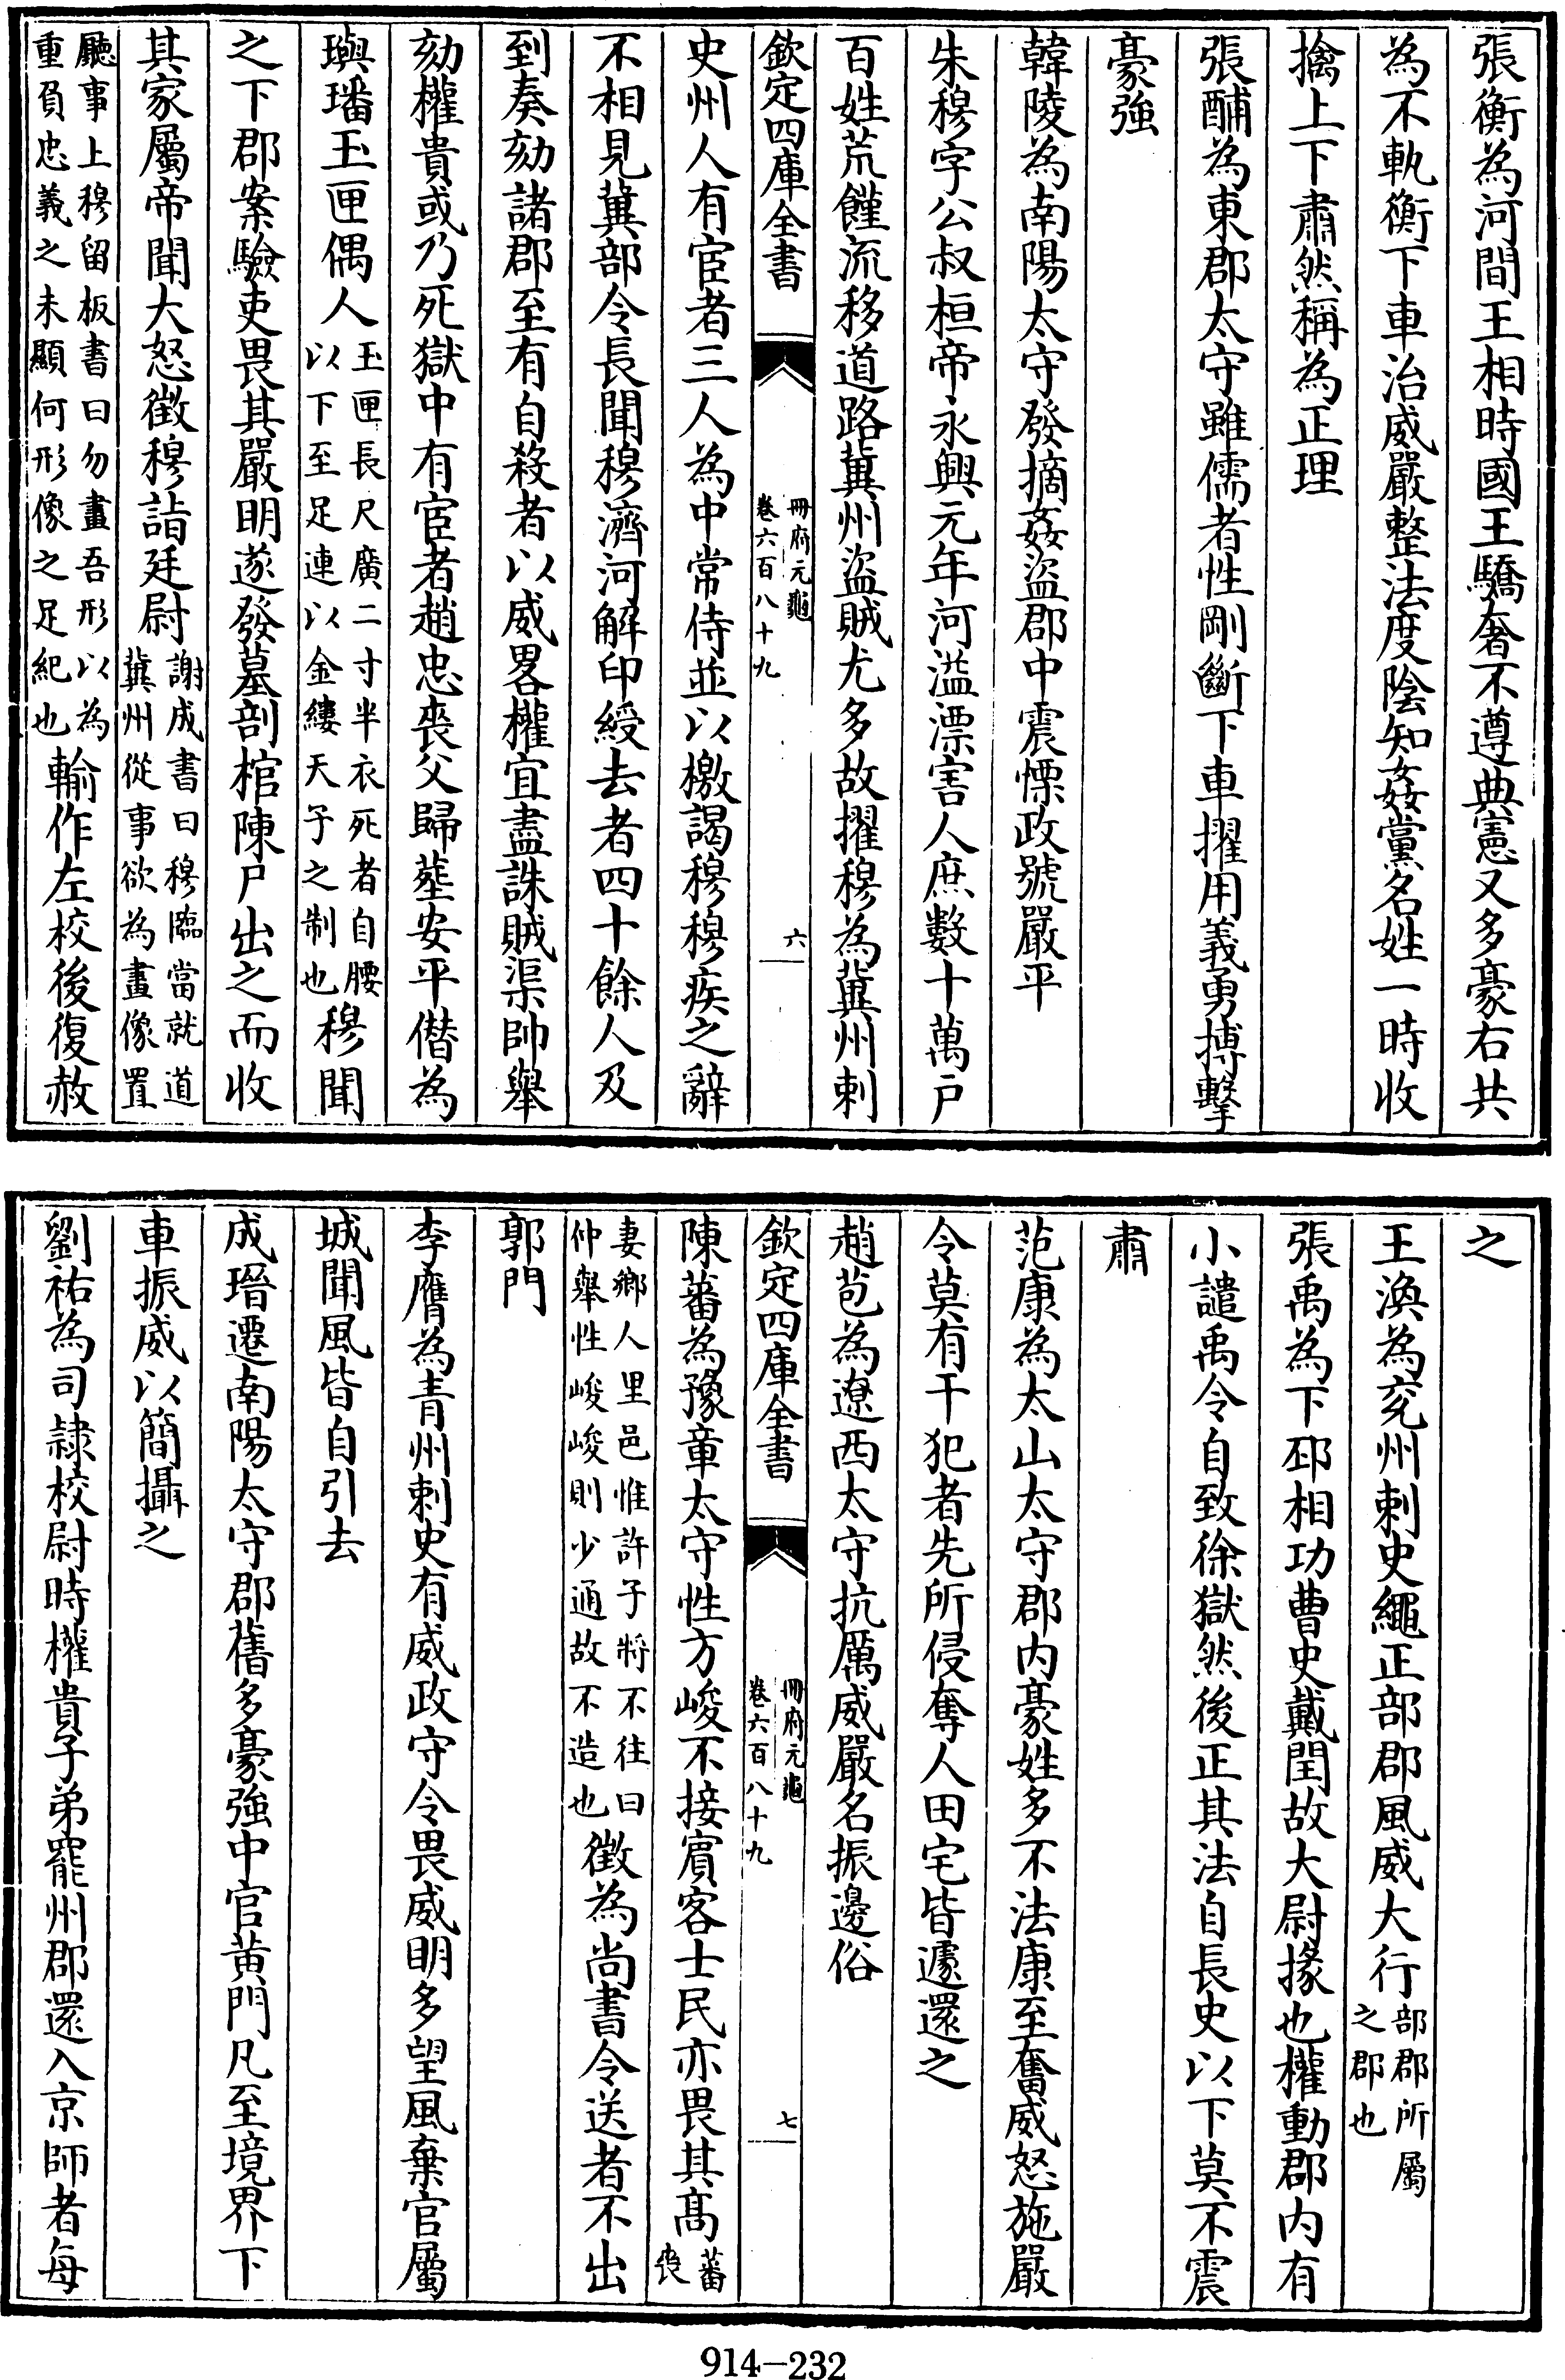 張衡為河間王相時國王驕奢不遵典憲又多豪右共
為不軌衡下車治威嚴整法度陰知姦黨名姓一時收
擒上下肅然稱為正理
張酺為東郡太守雖儒者性剛斷下車擢用義勇搏擊
豪強
韓陵為南陽太守發摘姦盜郡中震慄政號嚴平
朱穆字公叔桓帝永興元年河溢漂害人庶數十萬戶
百姓荒饉流移道路冀州盜賊尤多故擢穆為冀州刺
欽定四庫全書
冊府元龜
卷六百八十九
六
史州人有宦者三人為中常侍並以檄謁穆穆疾之辭
不相見冀部令長聞穆濟河解印綬去者四十餘人及
到奏劾諸郡至有自殺者以威畧權宜盡誅賊渠帥舉
劾權貴或乃死獄中有宦者趙忠喪父歸葬安平僣為
璵璠玉匣偶人玉匣長尺廣二寸半衣死者自腰以下至足連以金縷天子之制也穆聞
之下郡案驗吏畏其嚴明遂發墓剖棺陳尸出之而收
其家屬帝聞大怒徵穆詣廷尉謝成書曰穆臨當就道冀州從事欲為畫像置
廳事上穆留板書曰勿畫吾形以為重負忠義之未顯何形像之足紀也輸作左校後復赦
之
王渙為兖州刺史繩正部郡風威大行部郡所屬之郡也
張禹為下邳相功曹史戴閏故大尉掾也權動郡內有
小譴禹令自致徐獄然後正其法自長史以下莫不震
肅
范康為太山太守郡內豪姓多不法康至奮威怒施嚴
令莫有干犯者先所侵奪人田宅皆遽還之
趙苞為遼西太守抗厲威嚴名振邊俗
欽定四庫全書
冊府元龜
卷六百八十九
七
陳蕃為豫章太守性方峻不接賓客士民亦畏其髙蕃喪
妻鄉人里邑惟許子將不往曰仲舉性峻峻則少通故不造也徵為尚書令送者不出
郭門
李膺為青州刺史有威政守令畏威明多望風棄官屬
城聞風皆自引去
成瑨遷南陽太守郡舊多豪強中官黃門凡至境界下
車振威以簡攝之
劉祐為司隷校尉時權貴子弟罷州郡還入京師者每
914-232